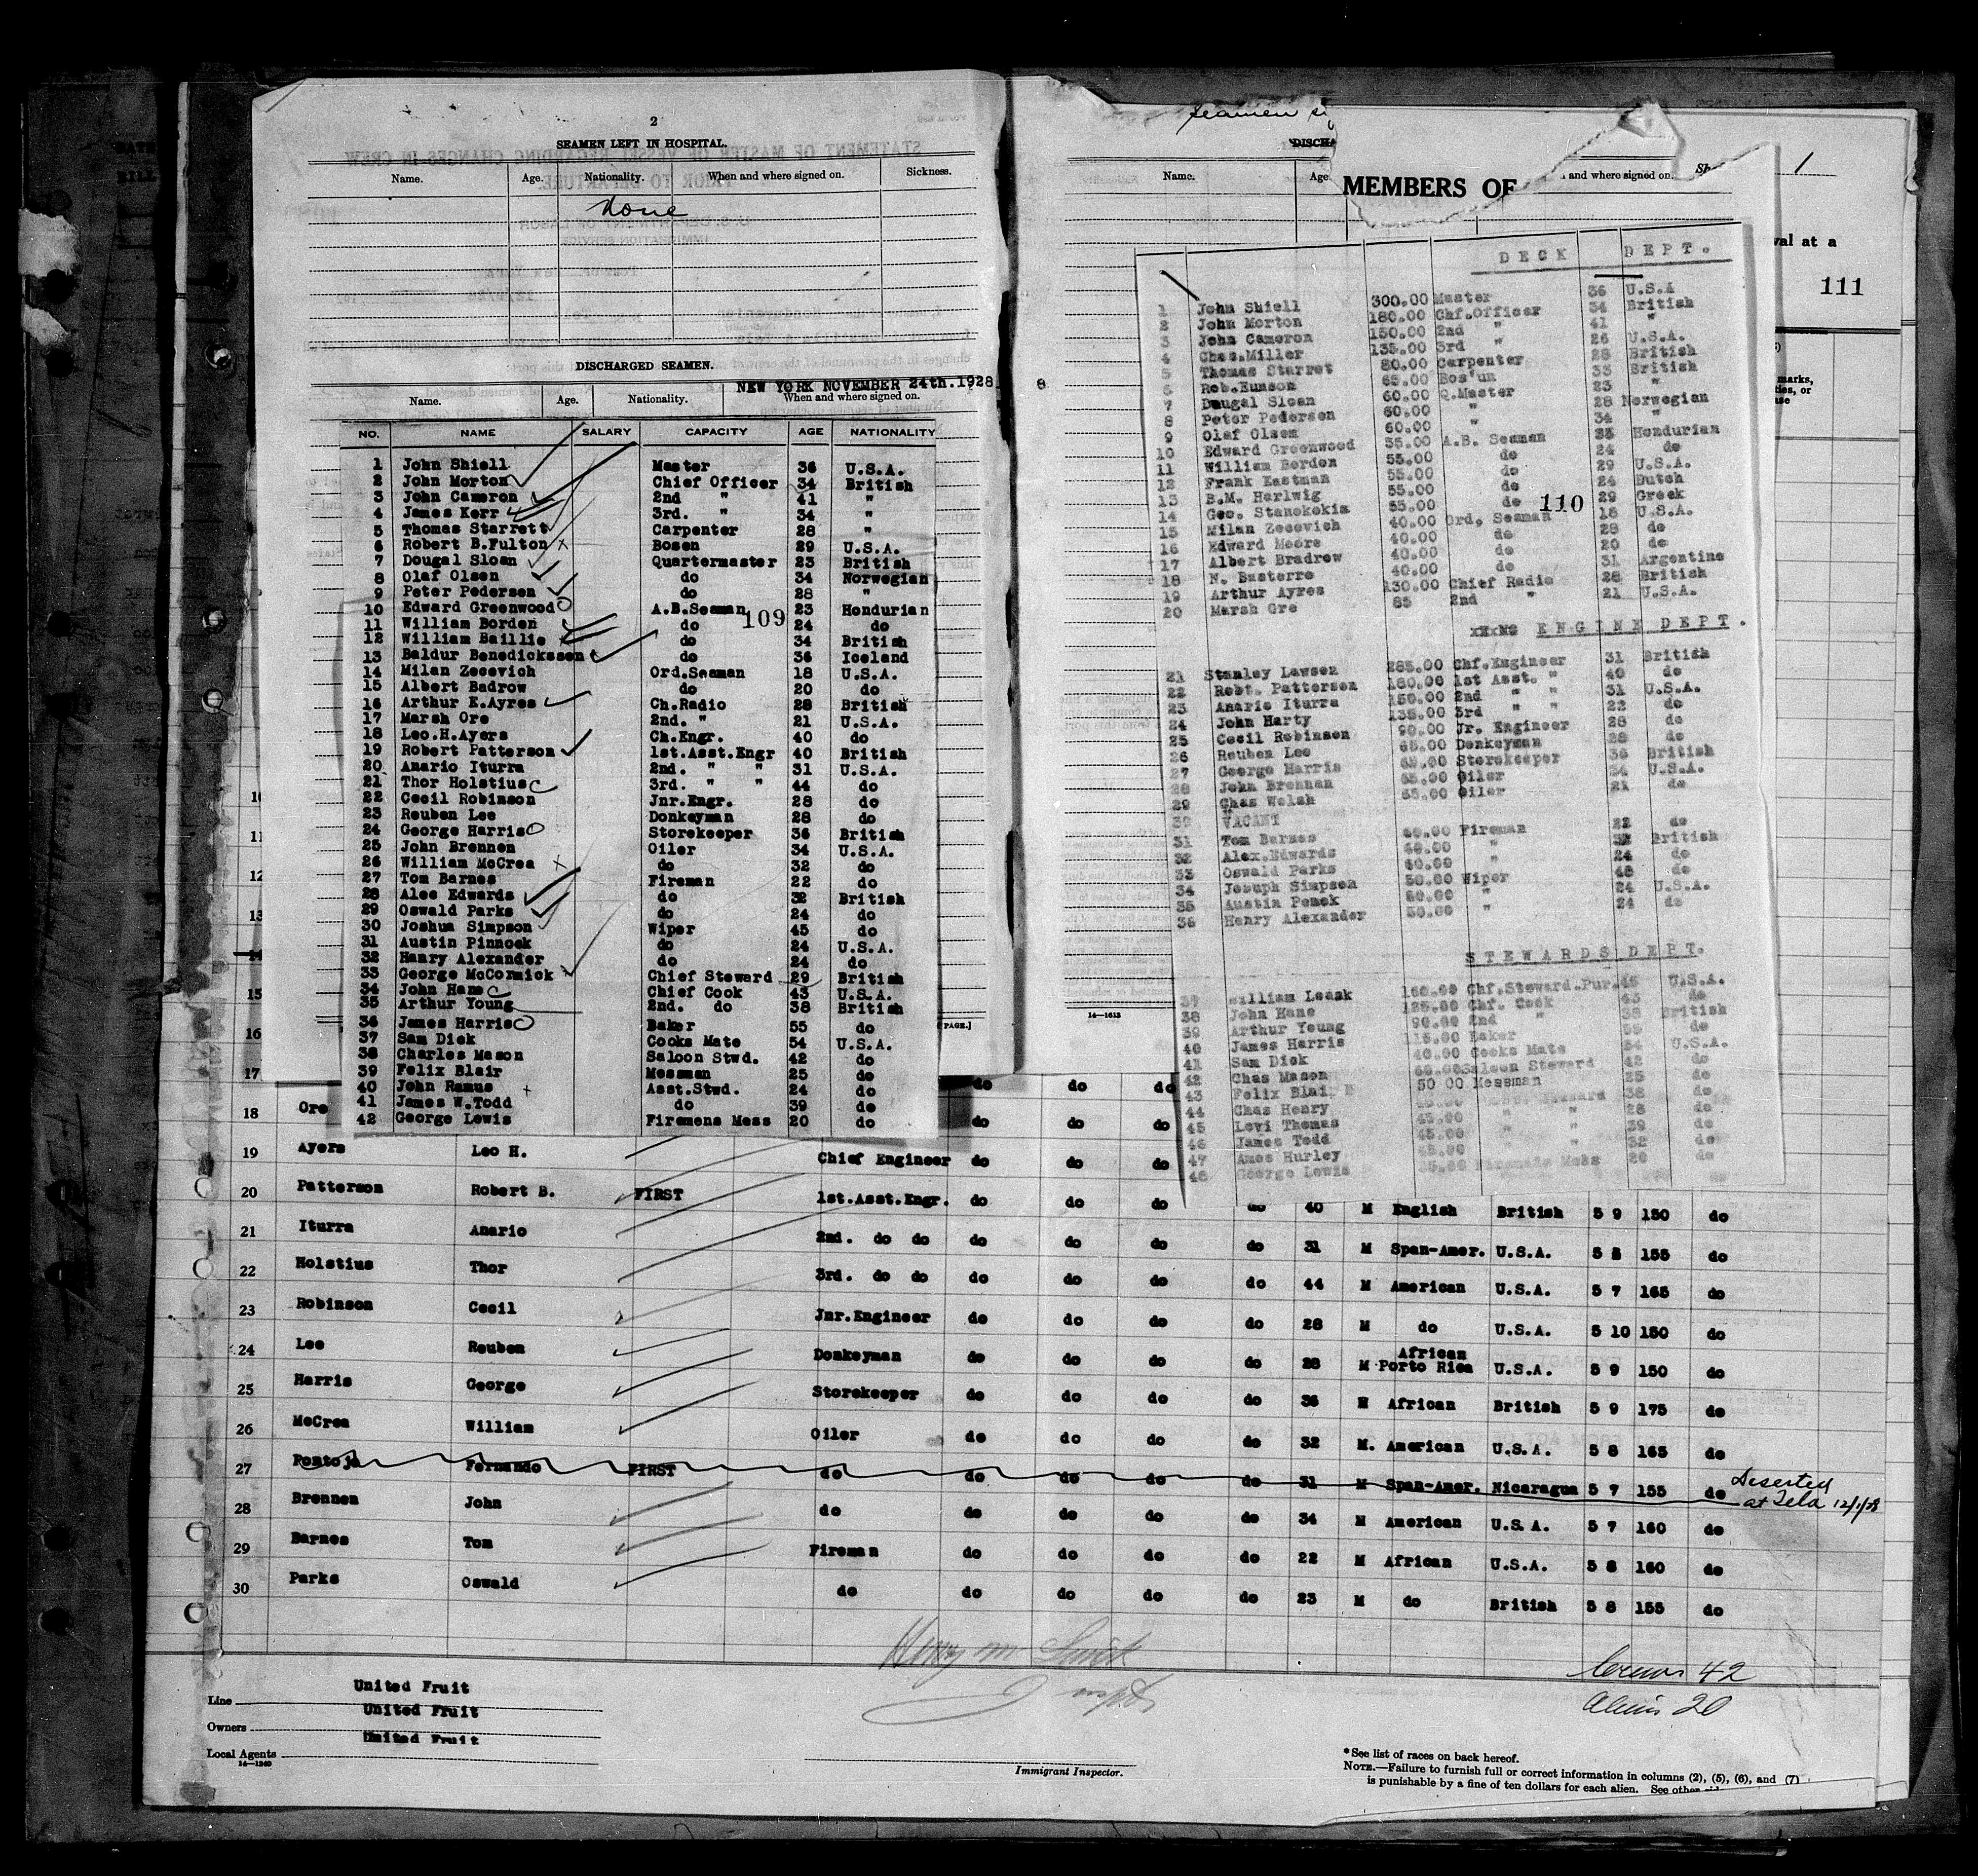 2
SEAMEN LEFT IN HOSPITAL.
Name. Age. Nationality. When and where signed on. Sickness.
None
DISCHARGED SEAMEN.
NEW YORK NOVEMBER 24th.1928
Name. Age. Nationality. When and where signed on.
NO. NAME SALARY CAPACITY AGE NATIONALITY
1 John Shiell Master 36 U.S.A.
2 John Morton Chief Officer 34 British
3 John Cameron 2nd " 41 "
4 James Kerr 3rd. " 34 "
5 Thomas Starrett Carpenter 28 "
6 Robert B.Fulton Bosen 29 U.S.A.
7 Dougal Sloan Quartermaster 23 British
8 Olaf Olsen do 34 Norwegian
9 Peter Pedersen do 28 "
10 Edward Greenwood A.B.Seaman 23 Hondurian
109
11 William Borden do 24 do
12 William Baillie do 34 British
13 Baldur Benedickssen do 36 Iceland
14 Milan Zecevich Ord.Seaman 18 U.S.A.
15 Albert Badrow do 20 do
16 Arthur E.Ayres Ch.Radio 28 British
17 Marsh Ore 2nd. " 21 U.S.A.
18 Leo.H.Ayers Ch.Engr. 40 do
19 Robert Patterson 1st.Asst.Engr 40 British
20 Anario Iturra 2nd. " " 31 U.S.A.
21 Thor Holstius 3rd. " " 44 do
22 Cecil Robinson Jnr.Engr. 28 do
23 Reuben Lee Donkeyman 28 do
24 George Harris Storekeeper 36 British
25 John Brennen Oiler 34 U.S.A.
26 William McCrea do 32 do
27 Tom Barnes Fireman 22 do
28 Alec Edwards do 32 British
29 Oswald Parks do 24 do
30 Joshua Simpson Wiper 45 do
31 Austin Pinnock do 24 U.S.A.
32 Henry Alexander do 24 do
33 George McCormick Chief Steward 29 British
34 John Hane Chief Cook 43 U.S.A.
35 Arthur Young 2nd. do 38 British
36 James Harris Baker 55 do
37 Sam Dick Cooks Mate 54 U.S.A.
38 Charles Mason Saloon Stwd. 42 do
39 Felix Blair Messman 25 do
40 John Ramus Asst.Stwd. 24 do
41 James W.Todd do 39 do
42 George Lewis Firemens Mess 20 do
seamen
DISCHA
Name. Age and where signed on.
1
MEMBERS OF
val at a
111
marks,
8
DECK DEPT.
1 John Shiell 300.00 Master 36 U.S.A
2 John Morton 180.00 Chf.Officer 34 British
3 John Cameron 150.00 2nd " 41 "
4 Chas.Miller 135.00 3rd " 26 U.S.A.
5 Thomas Starret 80.00 Carpenter 28 British
6 Rob.Eunson 65.00 Bos'un 33 British
7 Dougal Sloan 60.00 Q.Master 23 "
8 Peter Pedersen 60.00 " 28 Norwegian
9 Olaf Olsen 60.00 " 34 "
10 Edward Greenwood 55.00 A.B. Seaman 23 Hondurian
11 William Borden 55.00 do 24 do
12 Frank Eastman 55.00 do 29 U.S.A.
13 B.M. Harlwig 55.00 do 24 Dutch
14 Geo. Stanokokis 55.00 do 29 Greek
110
15 Milan Zecovich 40.00 Ord. Seaman 18 U.S.A.
16 Edward Moore 40.00 do 28 do
17 Albert Bradrow 40.00 do 20 do
18 N. Basterre 40.00 do 31 Argentine
19 Arthur Ayres 130.00 Chief Radio 28 British
20 Marsh Ore 85 2nd " 21 U.S.A.
ENGINE DEPT.
21 Stanley Lawson 285.00 Chf.Engineer 31 British
22 Robt. Patterson 180.00 1st Asst. " 40 do
23 Anario Iturra 150.00 2nd " " 31 U.S.A.
24 John Harty 135.00 3rd " " 22 do
25 Cecil Robinson 90.00 Jr. Engineer 28 do
26 Reuben Lee 65.00 Donkeyman 28 do
27 George Harris 65.00 Storekeeper 36 British
28 John Brennan 65.00 Oiler 34 U.S.A.
29 Chas Welsh 65.00 Oiler 21 do
30 VACANT
31 Tom Barnes 60.00 Fireman 22 do
32 Alex.Edwards 60.00 " 32 British
33 Oswald Parks 60.00 " 24 do
34 Joseph Simpson 50.00 Wiper 45 do
35 Austin Penok 50.00 " 24 U.S.A.
36 Henry Alexander 50.00 " 24 do
STEWARDS DEPT.
37 William Leask 160.00 Chf.Steward.Pur. U.S.A.
38 John Hane 125.00 Chf. Cook 43 do
39 Arthur Young 90.00 2nd " 38 British
40 James Harris 115.00 Baker 55 do
41 Sam Dick 40.00 Cooks Mate 54 U.S.A.
42 Chas Mason 60.00 Saloon Steward 42 do
43 Felix Blair 50 00 Messman 25 do
44 Chas Henry 38 do
45 Levi Thomas 45.00 " " 28 do
46 James Todd 45.00 " " 39 do
47 Amos Hurley 45.00 " " 32 do
48 George Lewis 20 do
14—1613
PAGE.]
10
11
12
13
14
15
16
17 do do do
18 Ore do do do
19 Ayers Leo H. Chief Engineer do do do
20 Patterson Robert B. FIRST 1st.Asst.Engr. do do do do 40 M English British 5 9 150 do
21 Iturra Anario 2nd. do do do do do do 31 M Span-Amer. U.S.A. 5 5 155 do
22 Holstius Thor 3rd. do do do do do do 44 M American U.S.A. 5 7 165 do
23 Robinson Cecil Jnr.Engineer do do do do 28 M do U.S.A. 5 10 150 do
24 Lee Reuben Donkeyman do do do do 28 M African Porto Rica U.S.A. 5 9 150 do
25 Harris George Storekeeper do do do do 36 M African British 5 9 175 do
26 McCrea William Oiler do do do do 32 M. American U.S.A. 5 8 165 do
27 Pontoja Fernando FIRST do do do do do 31 M Span-Amer. Nicaragua 5 7 155 do Deserted at Tela 12/1/28
28 Brennen John do do do do do 34 M American U.S.A. 5 7 160 do
29 Barnes Tom Fireman do do do do 22 M African U.S.A. 5 8 160 do
30 Parks Oswald do do do do do 23 M do British 5 8 155 do
Crew 42
Aliens 20
Line United Fruit
Owners United Fruit
Local Agents United Fruit
14—1240
Immigrant Inspector.
*See list of races on back hereof.
NOTE.—Failure to furnish full or correct information in columns (2), (5), (6), and (7)
is punishable by a fine of ten dollars for each alien. See other